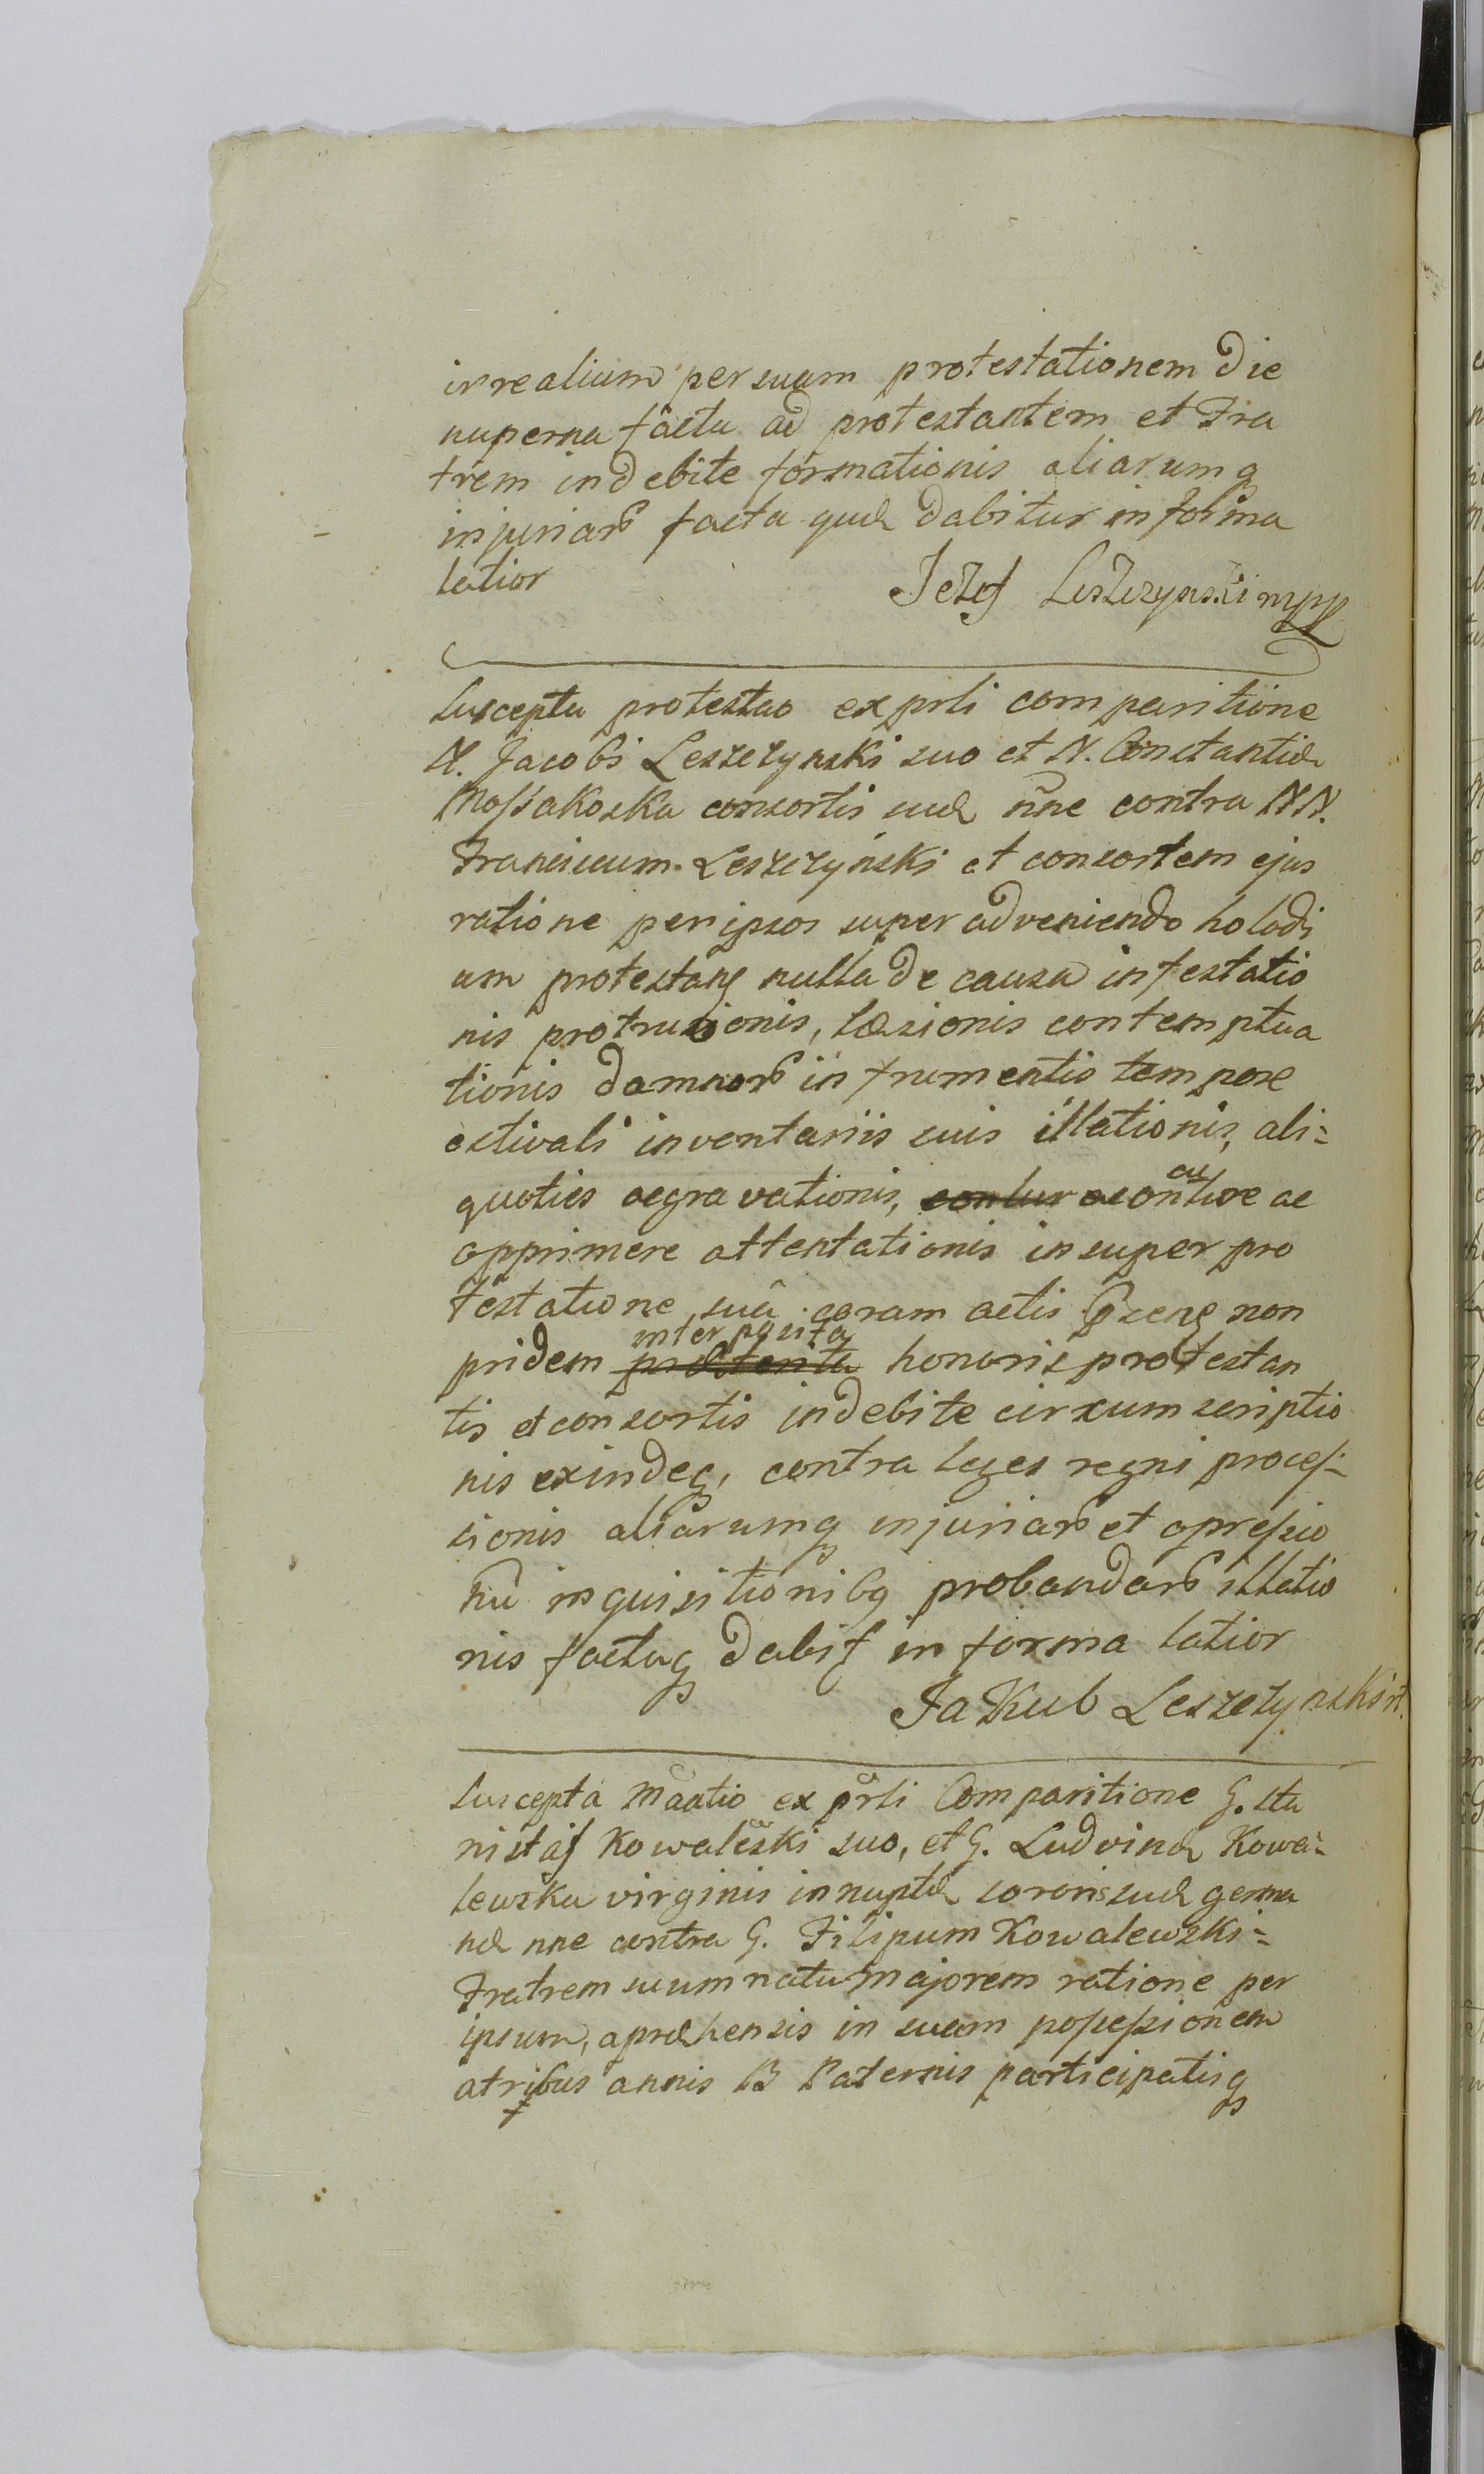 irrealium per suam protestationem die
nuperna facta ad protestantem et Fra
trem indebite formationis aliarumq
injuriar facta quæ dabitur in forma
latior
Jozef Leszczynski mpp
Suscepta protestao ex prli comparitione
N. Jacobi Leszczynski suo et N. Constantiæ
Mossakoska consortis suæ nne contra NN.
Franciscum Leszczyński et consortem ejus
ratione per ipsos super adveniendo holodi
um protestans nulla de causa infestatio
nis protrusionis, læsionis contemptua
tionis damnor in frumentis tempore
estivali inventariis suis illationis, ali=
quoties aegravationis, ac
opprimere attentationis insuper pro
testatione suâ coram actis non
pridem interposita honoris protestan
tis et consortis indebite circumscriptio
nis exindeq, contra leges regni proces=
sionis aliarumq injuriar et opressio
nũ inquisitionibq probandar illatio
nis factaq dabit in forma latior
Jakub Leszczynski
Suscepta Maatio ex prli Comparitione G. Sta
nislaj Kowaleski suo, et G. Ludvinæ Kowa=
lewska virginis innuptæ sororis suæ germa
næ nne contra G. Filipum Kowalewski=
Fratrem suum natu majorem ratione per
ipsum, apræhensis in suam possessionem
atribus annis B Paternis participatisq